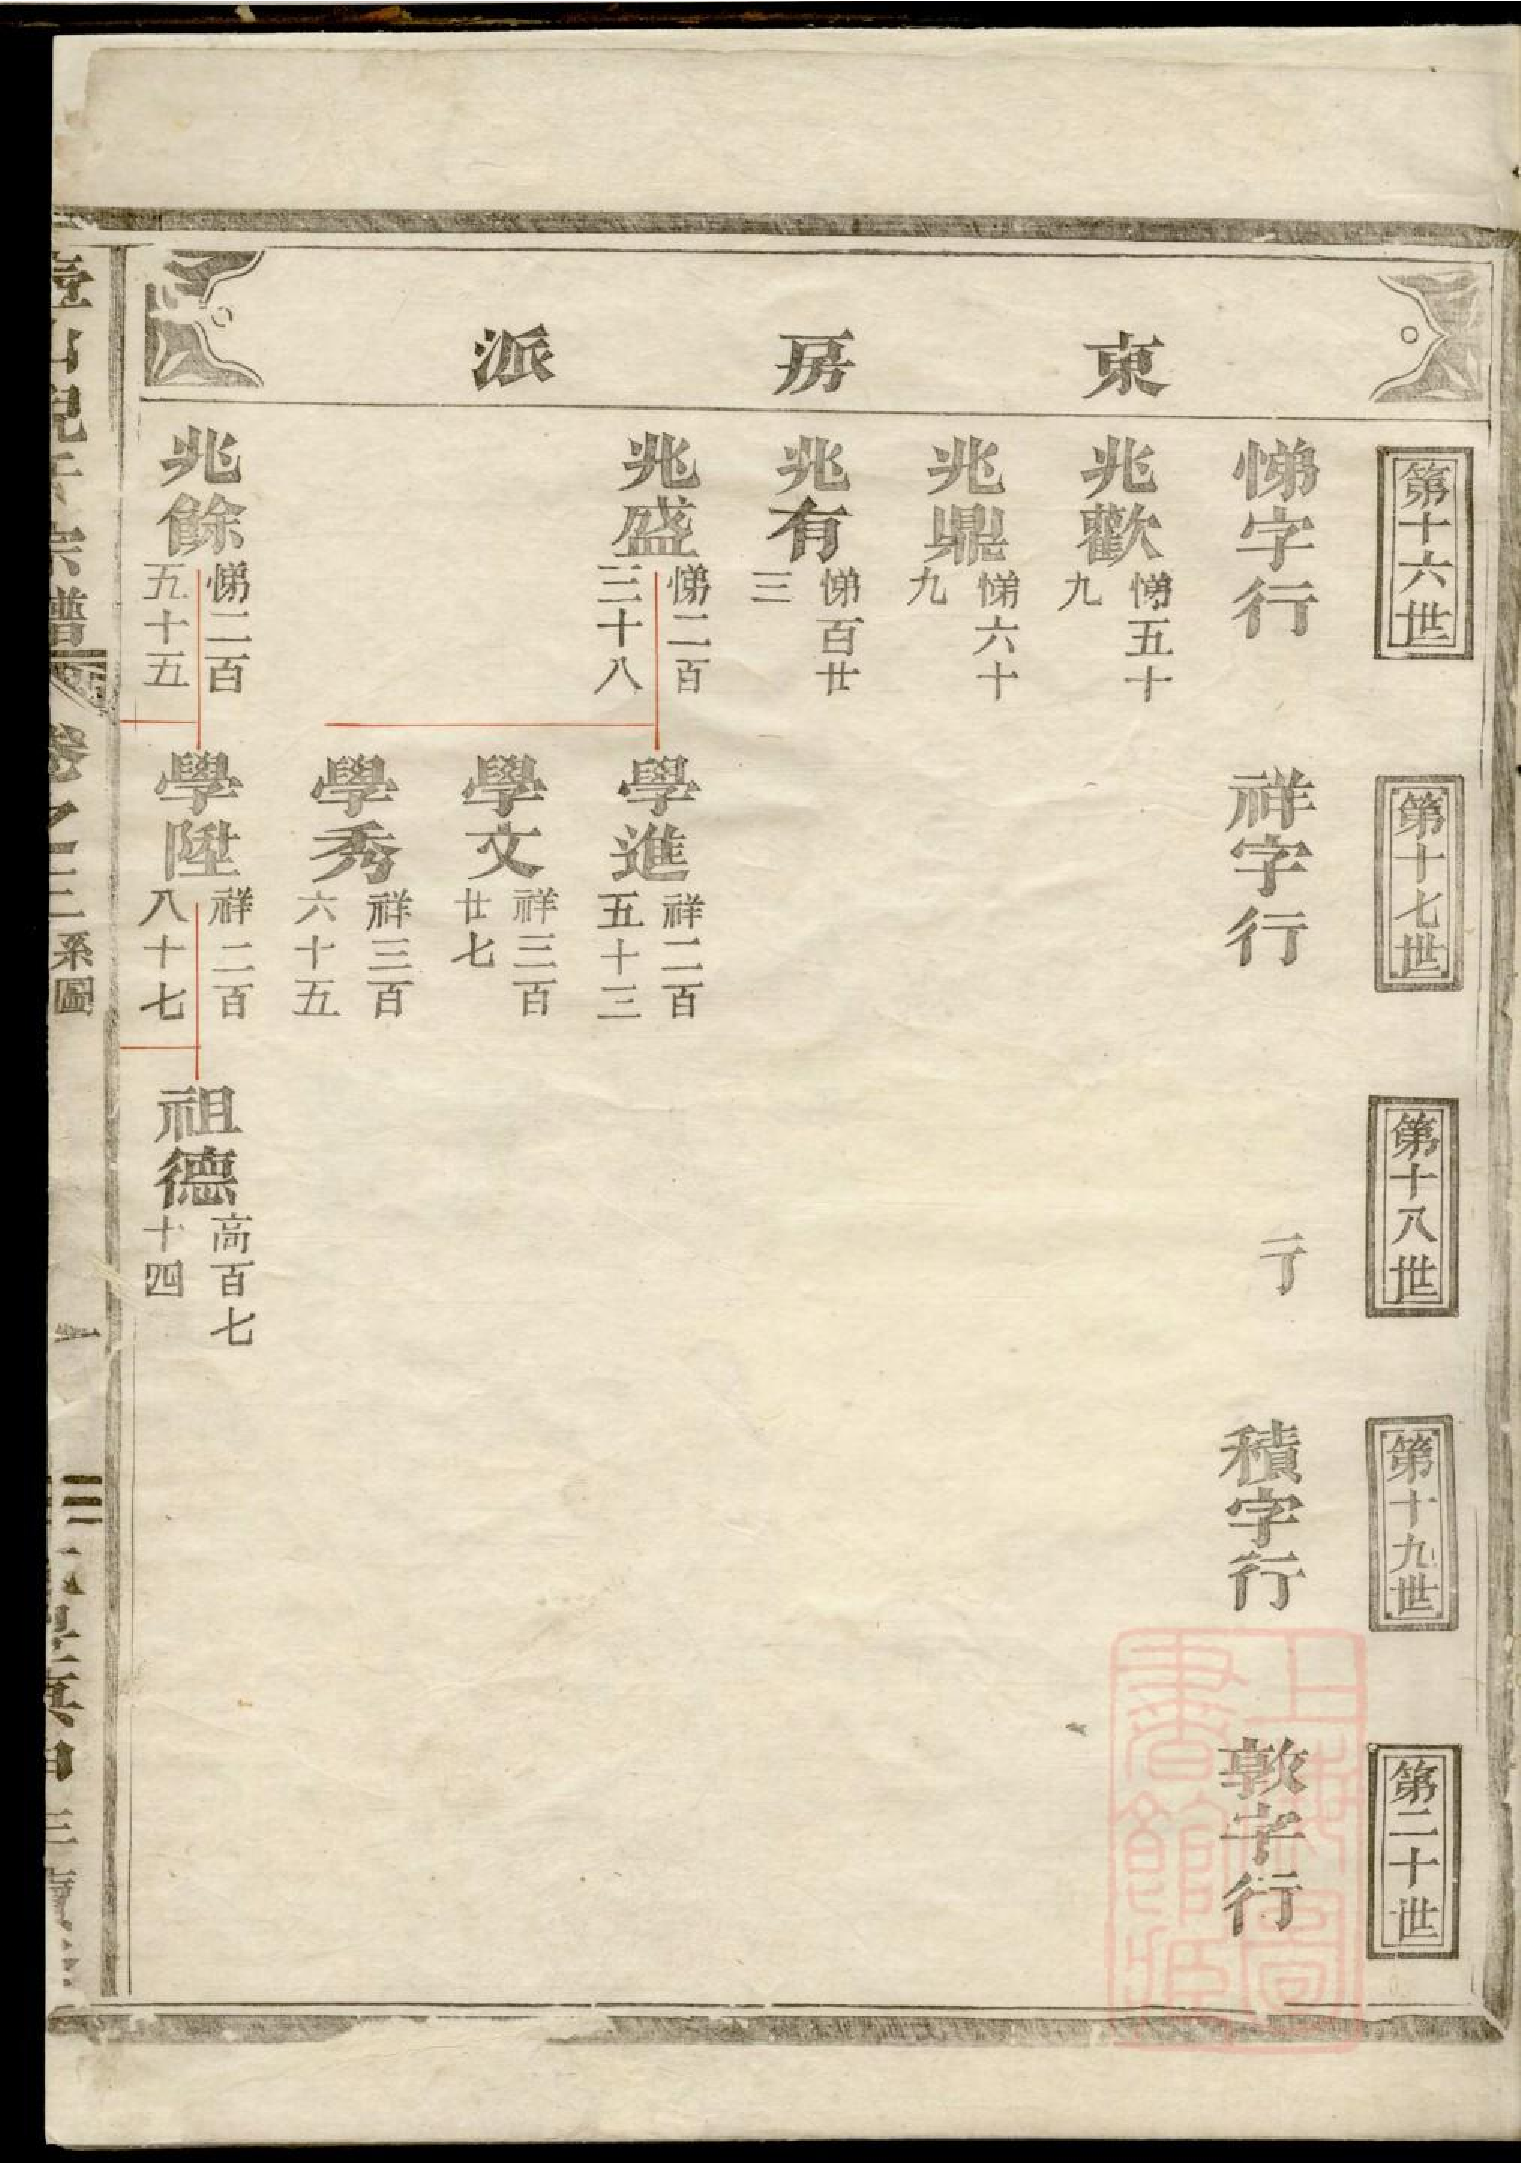 東房派
第十六世
第十七世
第十八世
第十九世
第二十世
悌字行
祥字行
積字行
敦字行
兆歡
悌五十
九
兆鼎
悌六十
九
兆有
悌百廿
三
兆盛
悌二百
三十八
學進
祥二百
五十三
學文
祥三百
廿七
學秀
祥三百
六十五
兆餘
悌二百
五十五
學陞
祥二百
八十七
祖德
高百七
十四
宗譜
卷之三系圖
上海圖
書館藏